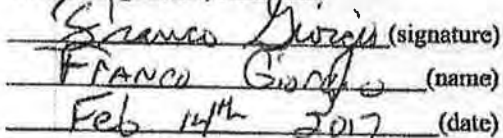 Franco Giorgio (signature)
FRANCO Giorgio (name)
Feb 14th 2017 (date)